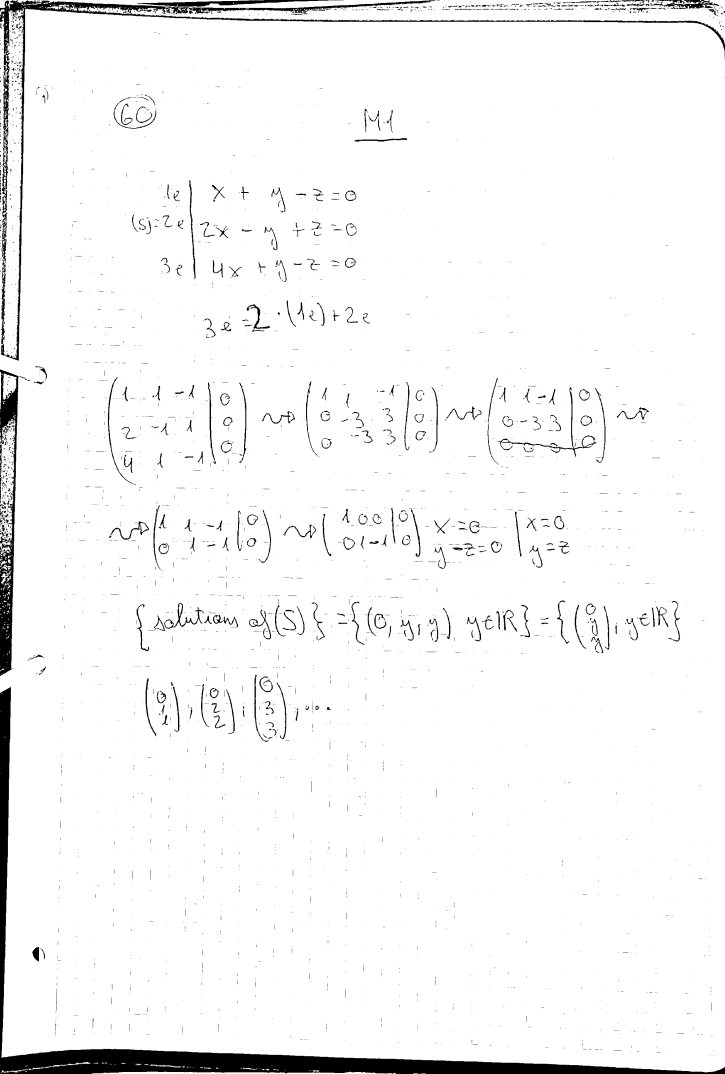 60
M1
1e | x + y - z = 0
(S)= 2e | 2x - y + z = 0
3e | 4x + y - z = 0
3e = 2 · (1e) + 2e
(1 1 -1 | 0) ⇝ (1 1 -1 | 0) ⇝ (1 1 -1 | 0) ⇝
(2 -1 1 | 0) (0 -3 3 | 0) (0 -3 3 | 0)
(4 1 -1 | 0) (0 -3 3 | 0) (0 0 0 | 0)
⇝ (1 1 -1 | 0) ⇝ (1 0 0 | 0) x = 0 | x = 0
(0 1 -1 | 0) (0 1 -1 | 0) y - z = 0 | y = z
{solutions of (S)} = {(0, y, y) y∈ℝ} = {(0 y y), y∈ℝ}
(0 1 1), (0 2 2), (0 3 3), ...